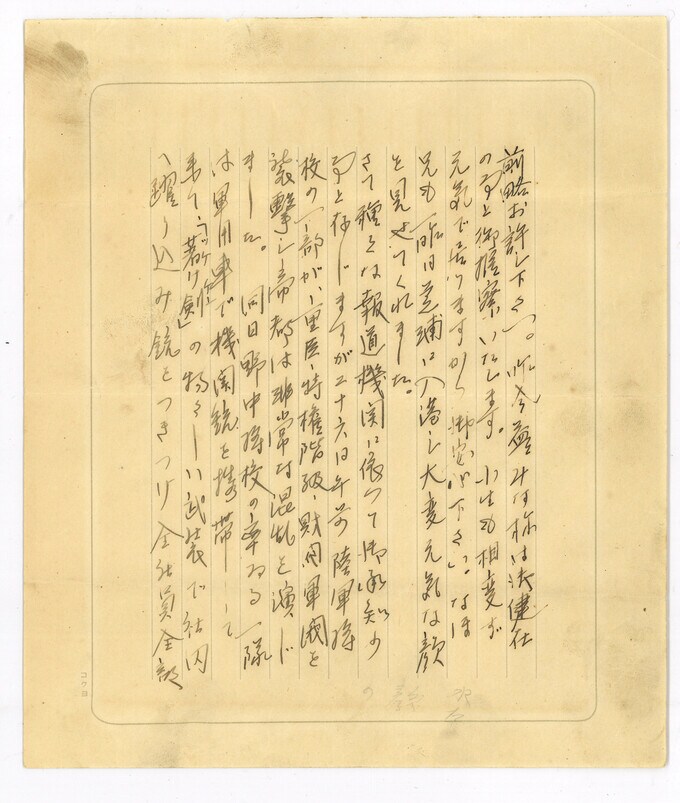 前略お許し下さい。昨今益々皆様は御健在
の事と御推察いたします。小生も相変ず
元気で居りますから御安心下さい。なほ
兄も一昨日芝浦に入港し大変元気な顔
を見せてくれました。
さて種々な報道機関に依つて御承知の
事と存じますが二十六日午前陸軍将
校の一部が、重臣、特権階級、財閥軍閥を
襲撃し帝都は非常な混乱を演じ
ました。同日野中将校の率ゐる一隊
は軍用車で機関銃を携帯して
来て「着け剣」の物々しい武装で社内
へ躍り込み銃をつきつけ全社員全部
コクヨ